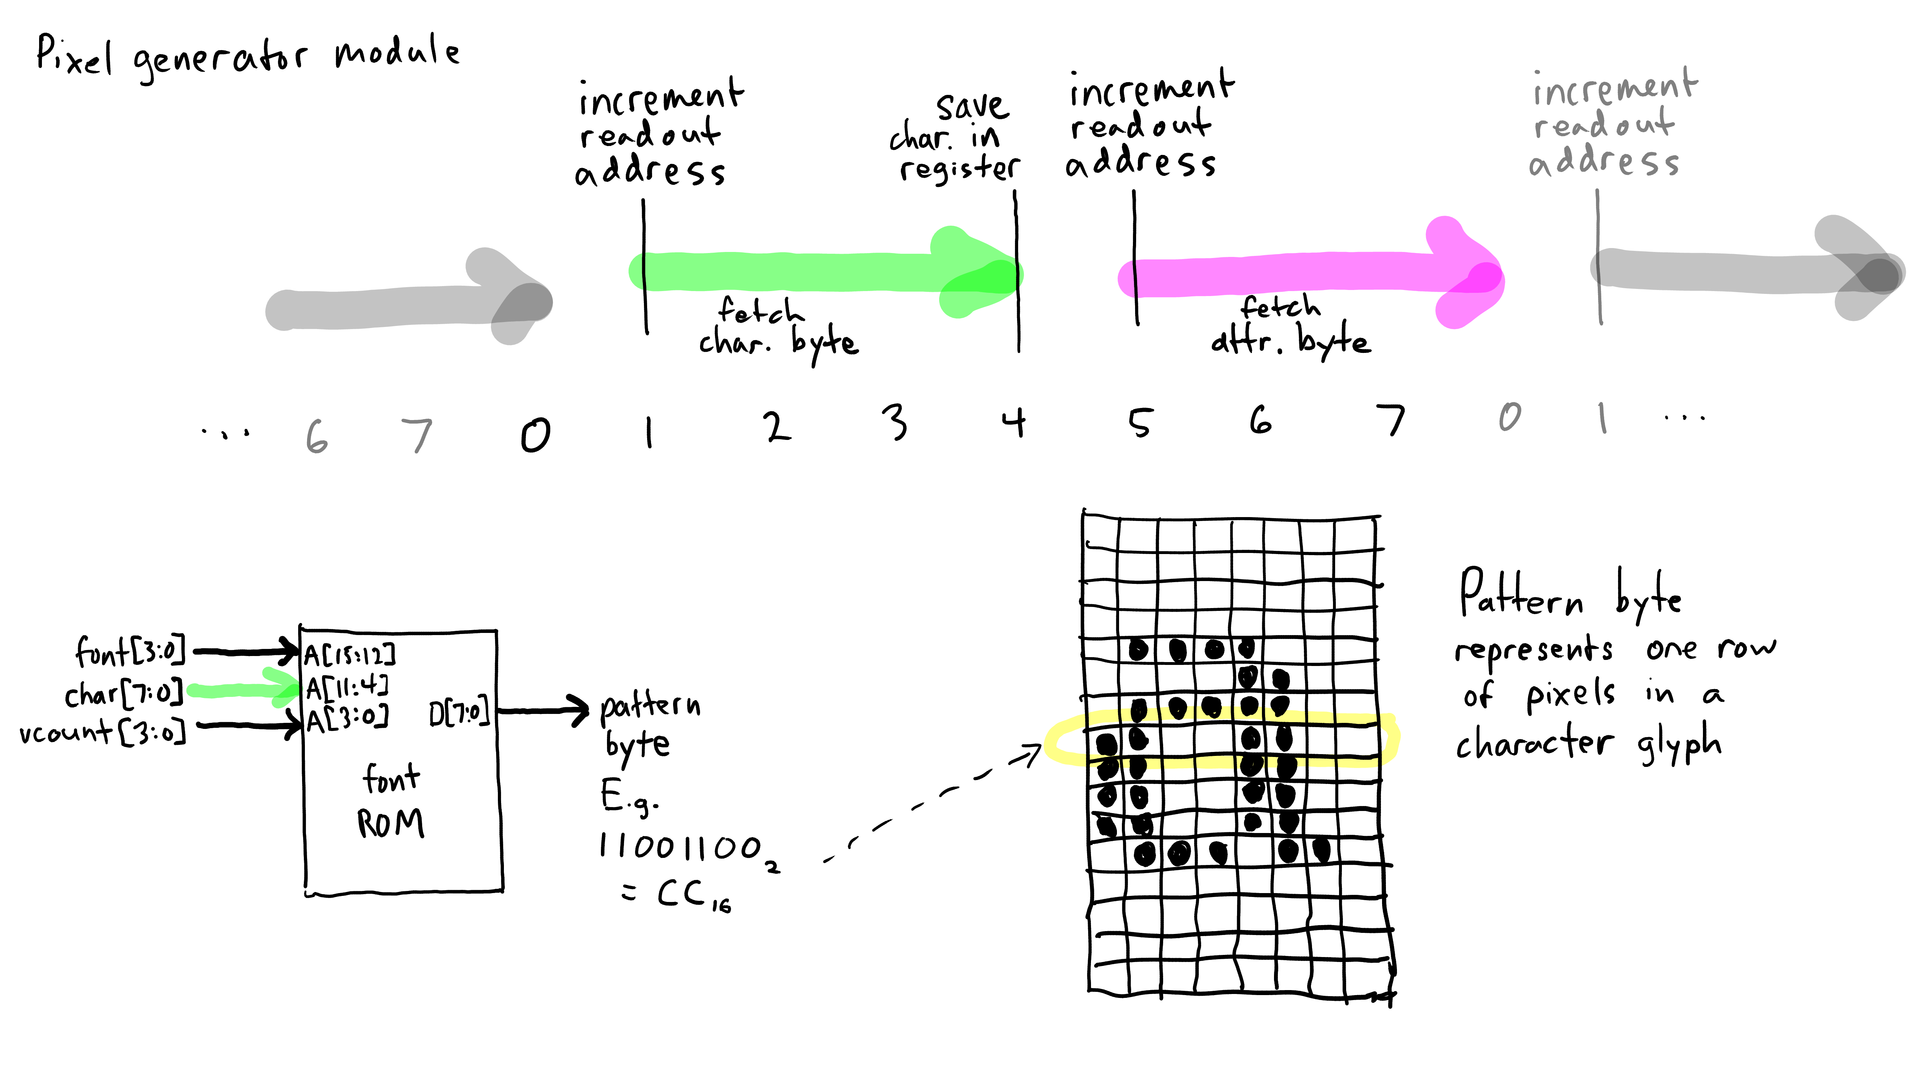 Pixel generator module
increment
readout
address
save
char. in
register
increment
readout
address
increment
readout
address
fetch
char. byte
fetch
attr. byte
... 6 7 0 1 2 3 4 5 6 7 0 1 ...
font[3:0]
char[7:0]
vcount[3:0]
A[15:12]
A[11:4]
A[3:0]
D[7:0]
font
ROM
pattern
byte
E.g.
11001100₂
= CC₁₆
Pattern byte
represents one row
of pixels in a
character glyph